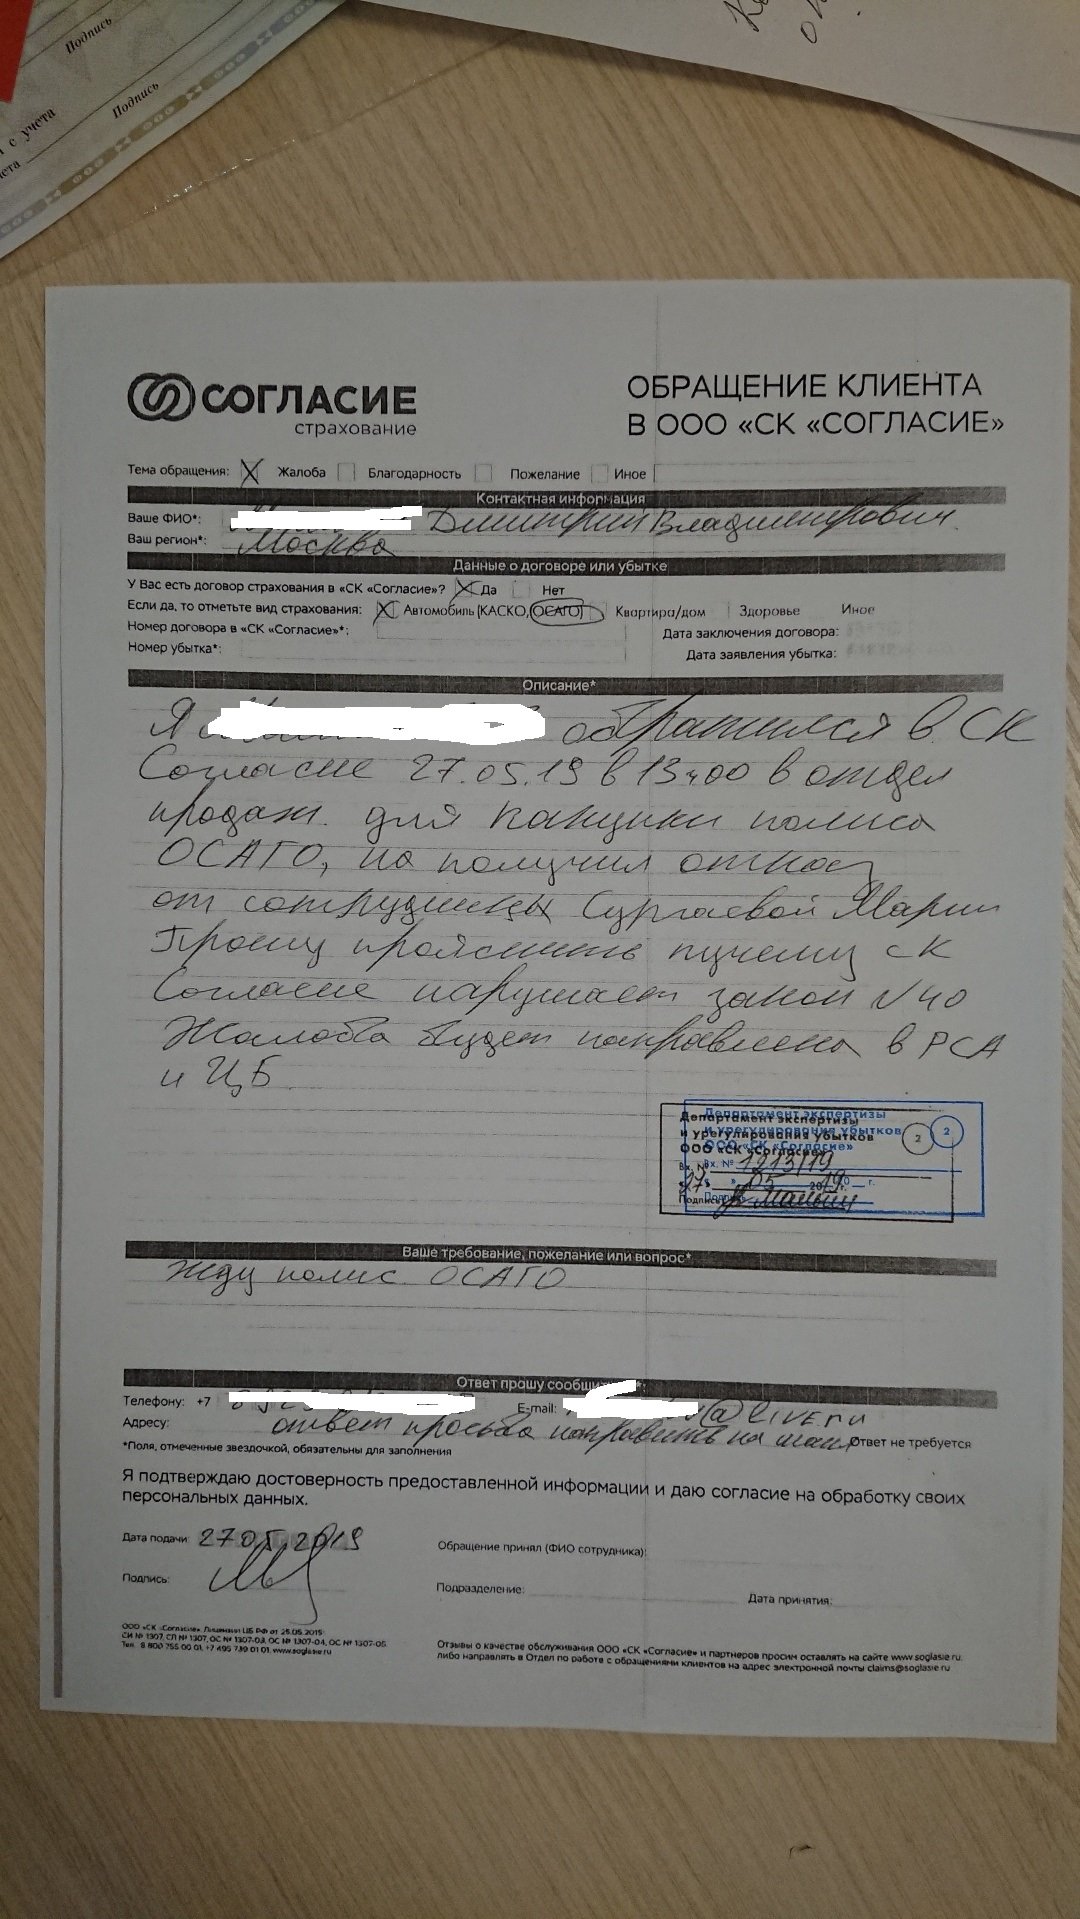 Подпись
Подпись
с учета
СОГЛАСИЕ
страхование
ОБРАЩЕНИЕ КЛИЕНТА
В ООО «СК «СОГЛАСИЕ»
Тема обращения: Жалоба Благодарность Пожелание Иное
Контактная информация
Ваше ФИО*: Дмитрий Владимирович
Ваш регион*: Москва
Данные о договоре или убытке
У Вас есть договор страхования в «СК «Согласие»? Да Нет
Если да, то отметьте вид страхования: Автомобиль (КАСКО, ОСАГО) Квартира/дом Здоровье Иное
Номер договора в «СК «Согласие»*: Дата заключения договора:
Номер убытка*: Дата заявления убытка:
Описание*
Я обратился в СК
Согласие 27.05.19 в 13ч00 в отдел
продаж. для покупки полиса
ОСАГО, но получил отказ
от сотрудницы Сургаевой Марии
Прошу прояснить почему СК
Согласие нарушает закон №40
Жалоба будет направлена в РСА
и ЦБ
Департамент экспертизы
и урегулирования убытков
ООО «СК «Согласие»
Вх. № 1213/19
27 05 2019 г.
Подпись
2
2
Ваше требование, пожелание или вопрос*
Жду полис ОСАГО
Ответ прошу сообщить
Телефону: +7 E-mail: @live.ru
Адресу: ответ просьба направить на Ответ не требуется
*Поля, отмеченные звездочкой, обязательны для заполнения
Я подтверждаю достоверность предоставленной информации и даю согласие на обработку своих
персональных данных.
Дата подачи 27.05.2019
Обращение принял (ФИО сотрудника):
Подпись:
Подразделение: Дата принятия:
ООО «СК «Согласие» Лицензии ЦБ РФ от 25.05.2015:
СИ № 1307, СЛ № 1307, ОС № 1307-03, ОС № 1307-04, ОС № 1307-05
Тел. 8 800 755 00 01, +7 495 739 01 01, www.soglasie.ru
Отзывы о качестве обслуживания ООО «СК «Согласие» и партнеров просим оставлять на сайте www.soglasie.ru,
либо направлять в Отдел по работе с обращениями клиентов на адрес электронной почты claims@soglasie.ru